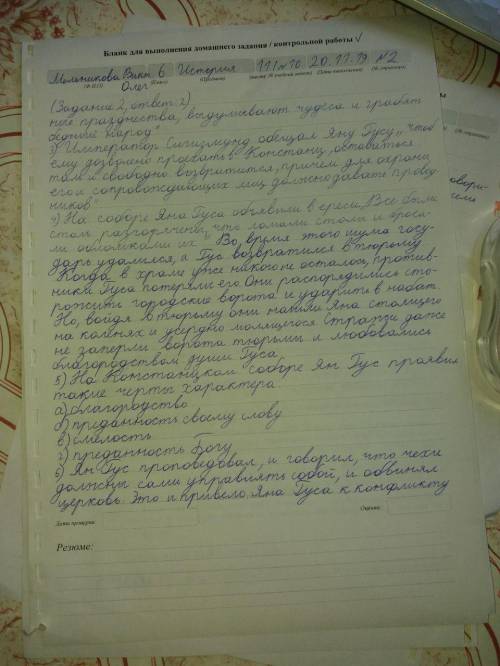 Бланк для выполнения домашнего задания / контрольной работы √
Мельникова Вика 6 История 111 №10 20.11.19 №2
(Ф.И.О) (Класс) (Предмет)
Олег
(Задание 2, ответ: 2)
ние празднества, выдумывают чудеса и грабят
бедный народ"
3) Император Сигизмунд обещал Яну Гусу „ чтоб
ему дозволено проехать в Констанц, оставаться
там и свободно возвратится, причем для охраны
его и сопровождающих лиц должно давать провод
ников"
4) На соборе Яна Гуса объявили в ереси. Все были
столь разгорячены, что ломали столы и броса-
ли обломками их. Во время этого шума госу-
дарь удалился, а Гус возвратился в тюрьму
Когда в храме уже никого не осталось, против-
ники Гуса потеряли его. Они распорядились сто-
рожить городские ворота и ударить в набат.
Но, войдя в тюрьму они нашли Яна стоящего
на коленях и усердно молящегося Стражи даже
не заперли ворота тюрьмы и любовались
благородством души Гуса.
5) На Констанцком соборе Ян Гус проявил
такие черты характера
а) благородство
б) преданность своему слову
в) смелость
г) преданность Богу
6) Ян Гус проповедовал, и говорил, что чехи
должны сами управлять собой, и обвинял
церковь. Это и привело Яна Гуса к конфликту
Дата проверки: Оценка:
Резюме: